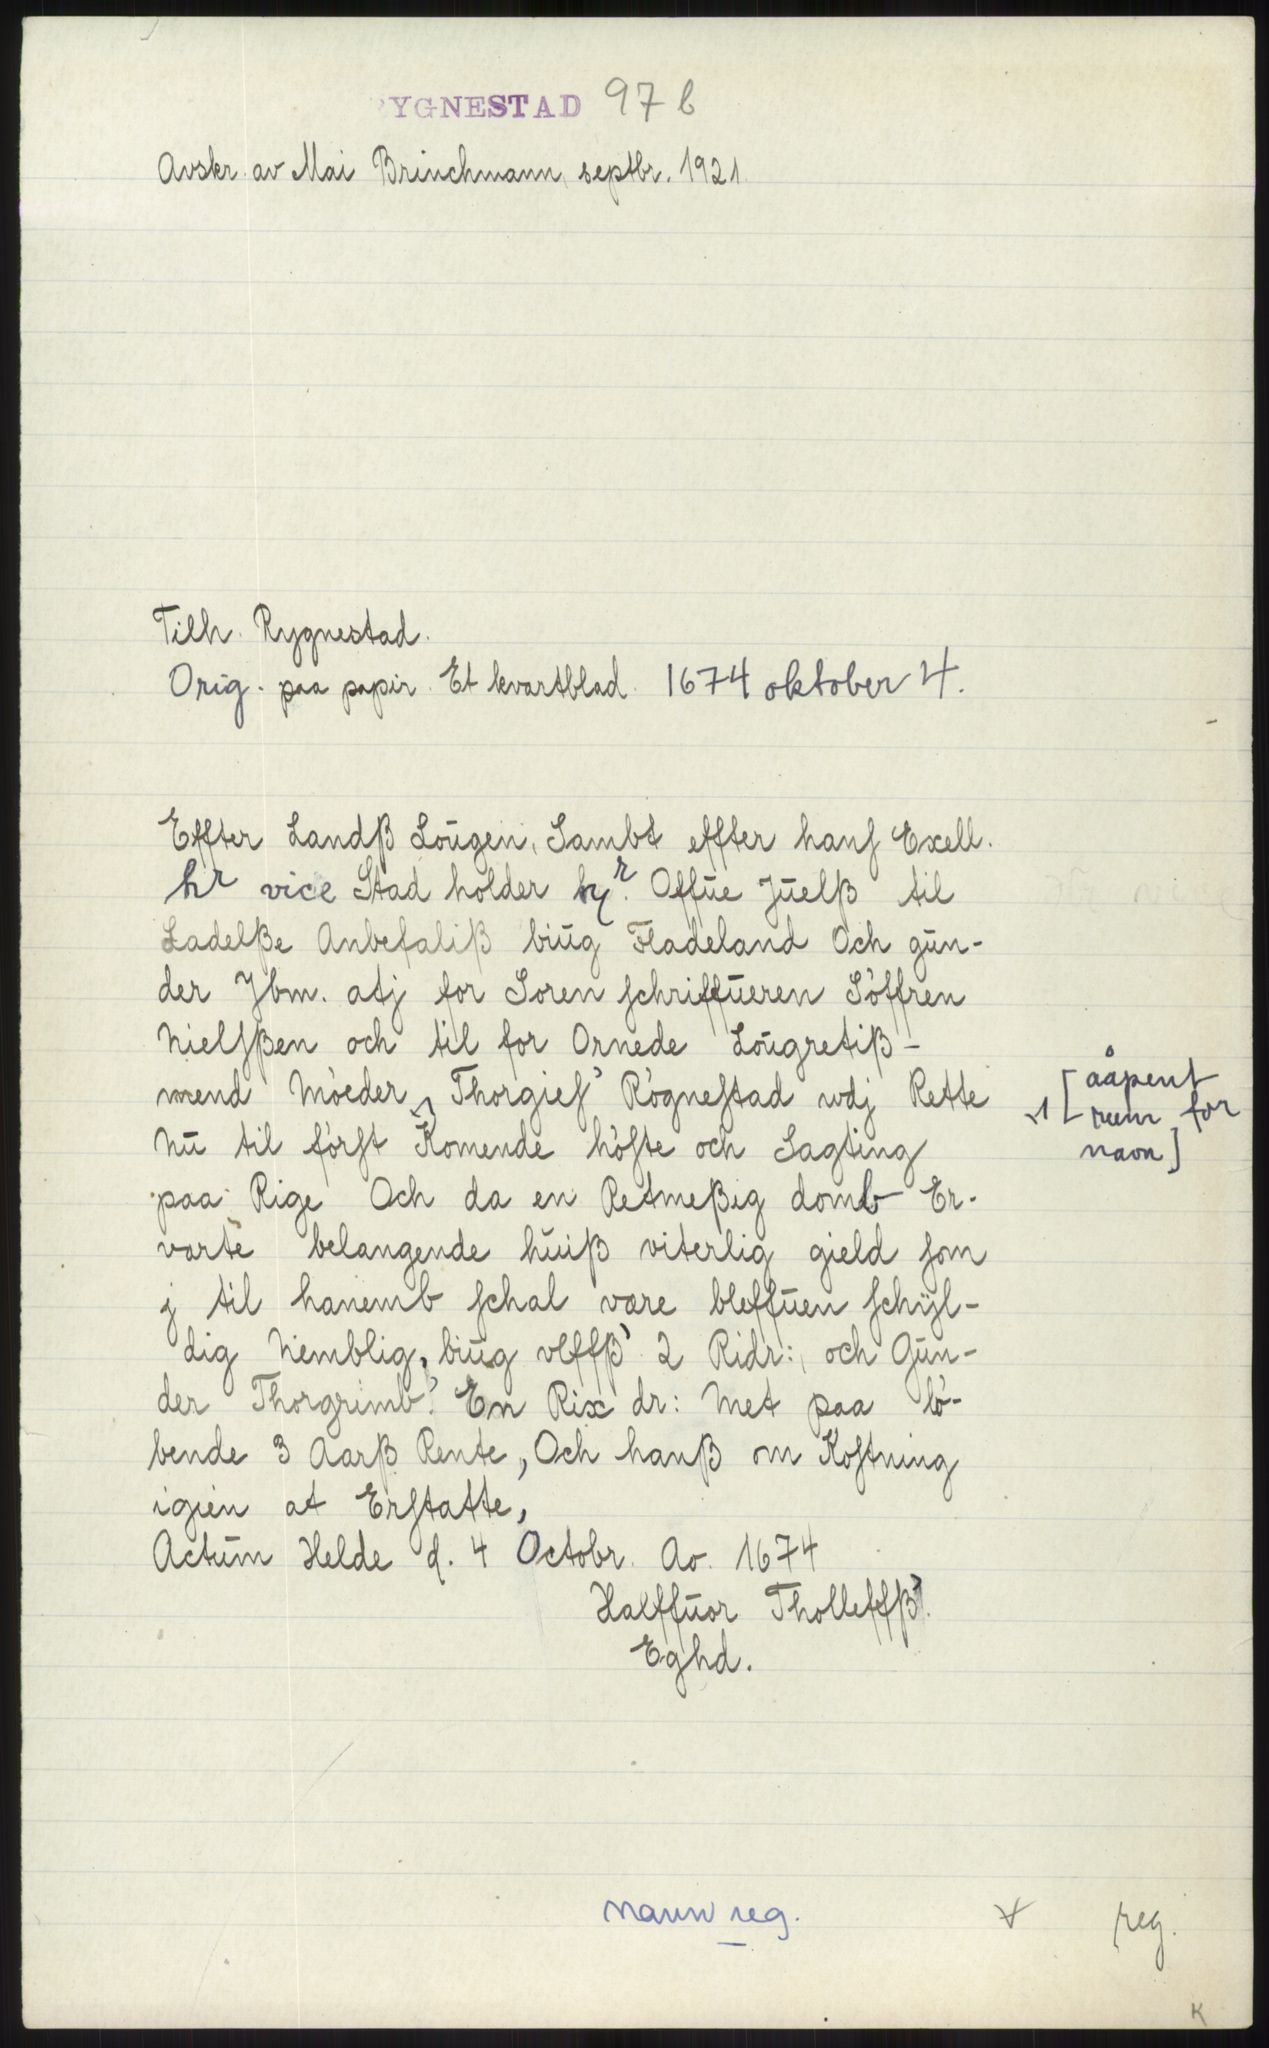 RYGNESTAD 97 b
Avskr. av Mai Brinchmann, septbr. 1921.
Tilh. Rygnestad.
Orig. paa papir. Et kvartblad. 1674 oktober 4.
Effter Landß Loŭgen, Sambt effter hanſ Exell.
hr vice Stad holder hr. Offŭe Jŭelß til
Ladelße Anbefaliß biŭg Fladeland Och gŭn-
der Jbm. atj for Soren ſchriffŭeren Söffren
Nielſßen och til for Ornede Loŭgretiß-
mend Möeder Thorgieſ Rögneſtad wdj Rette
Nŭ til förſt Komende höſte och Sagting
paa Rige Och da en Retmeßig domb Er-
varte belangende hŭiß viterlig gield ſom
j til hanemb ſchal være bleffŭen ſchÿl-
dig Nemblig, biŭg vlffß 2 Ridr:, och Gŭn-
der Thorgrimb. En Rix dr: Met paa lö-
bende 3 Aarß Rente, Och hanß om Koſtning
igien at Erſtatte,
Actŭm Helde d. 4 Octobr. Ao. 1674
Halffŭor Tholleffß.
Eghd.
1 [ aåpent
rum for
navn ]
navn reg.
reg.
K